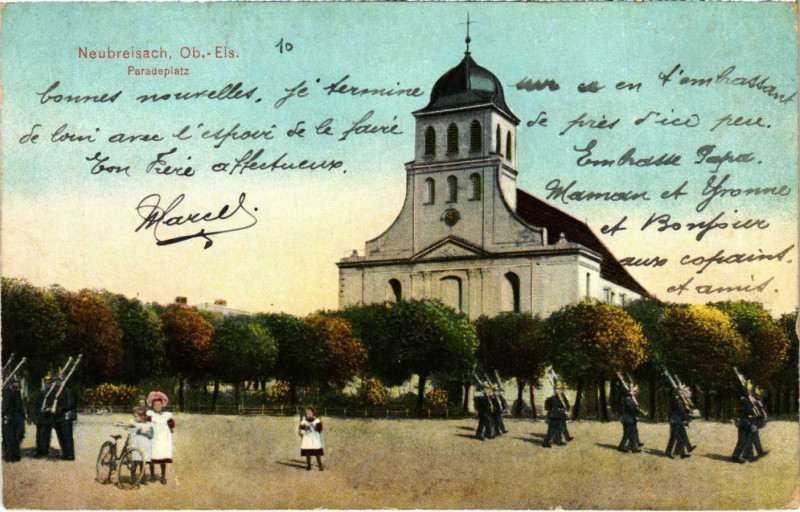 Neubreisach, Ob.-Els.
Paradeplatz
10
bonnes nouvelles. Je termine
de loin avec l'espoir de le faire
Ton Frère affectueux.
Marcel.
en t'embrassant
de près d'ici peu.
Embrasse Papa.
Maman et Yvonne
et Bonjour
aux copains.
et amis.